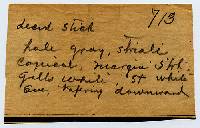 7/3
dead stick
pale gray, striate
conical, margin
Gills white St white
Eve, tapering downward